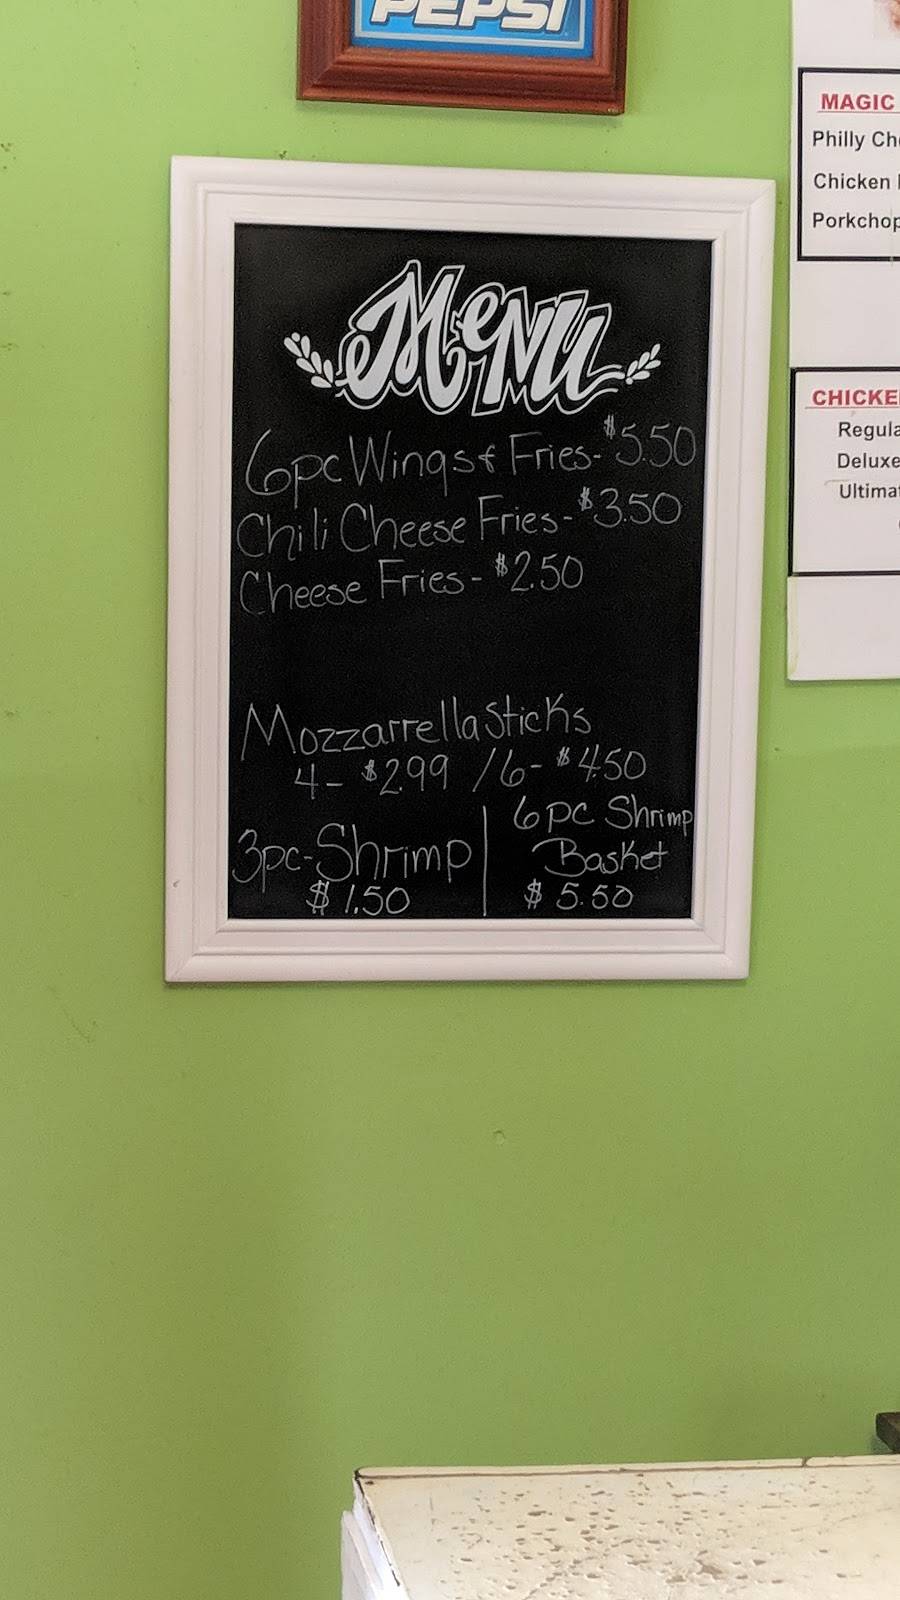 PEPSI
Menu
6pc Wings & Fries- $5.50
Chili Cheese Fries- $3.50
Cheese Fries- $2.50
Mozzarrella Sticks
4- $2.99 / 6- $4.50
3pc- Shrimp
$1.50
6pc Shrimp
Basket
$5.50
MAGIC
Philly
Chicken